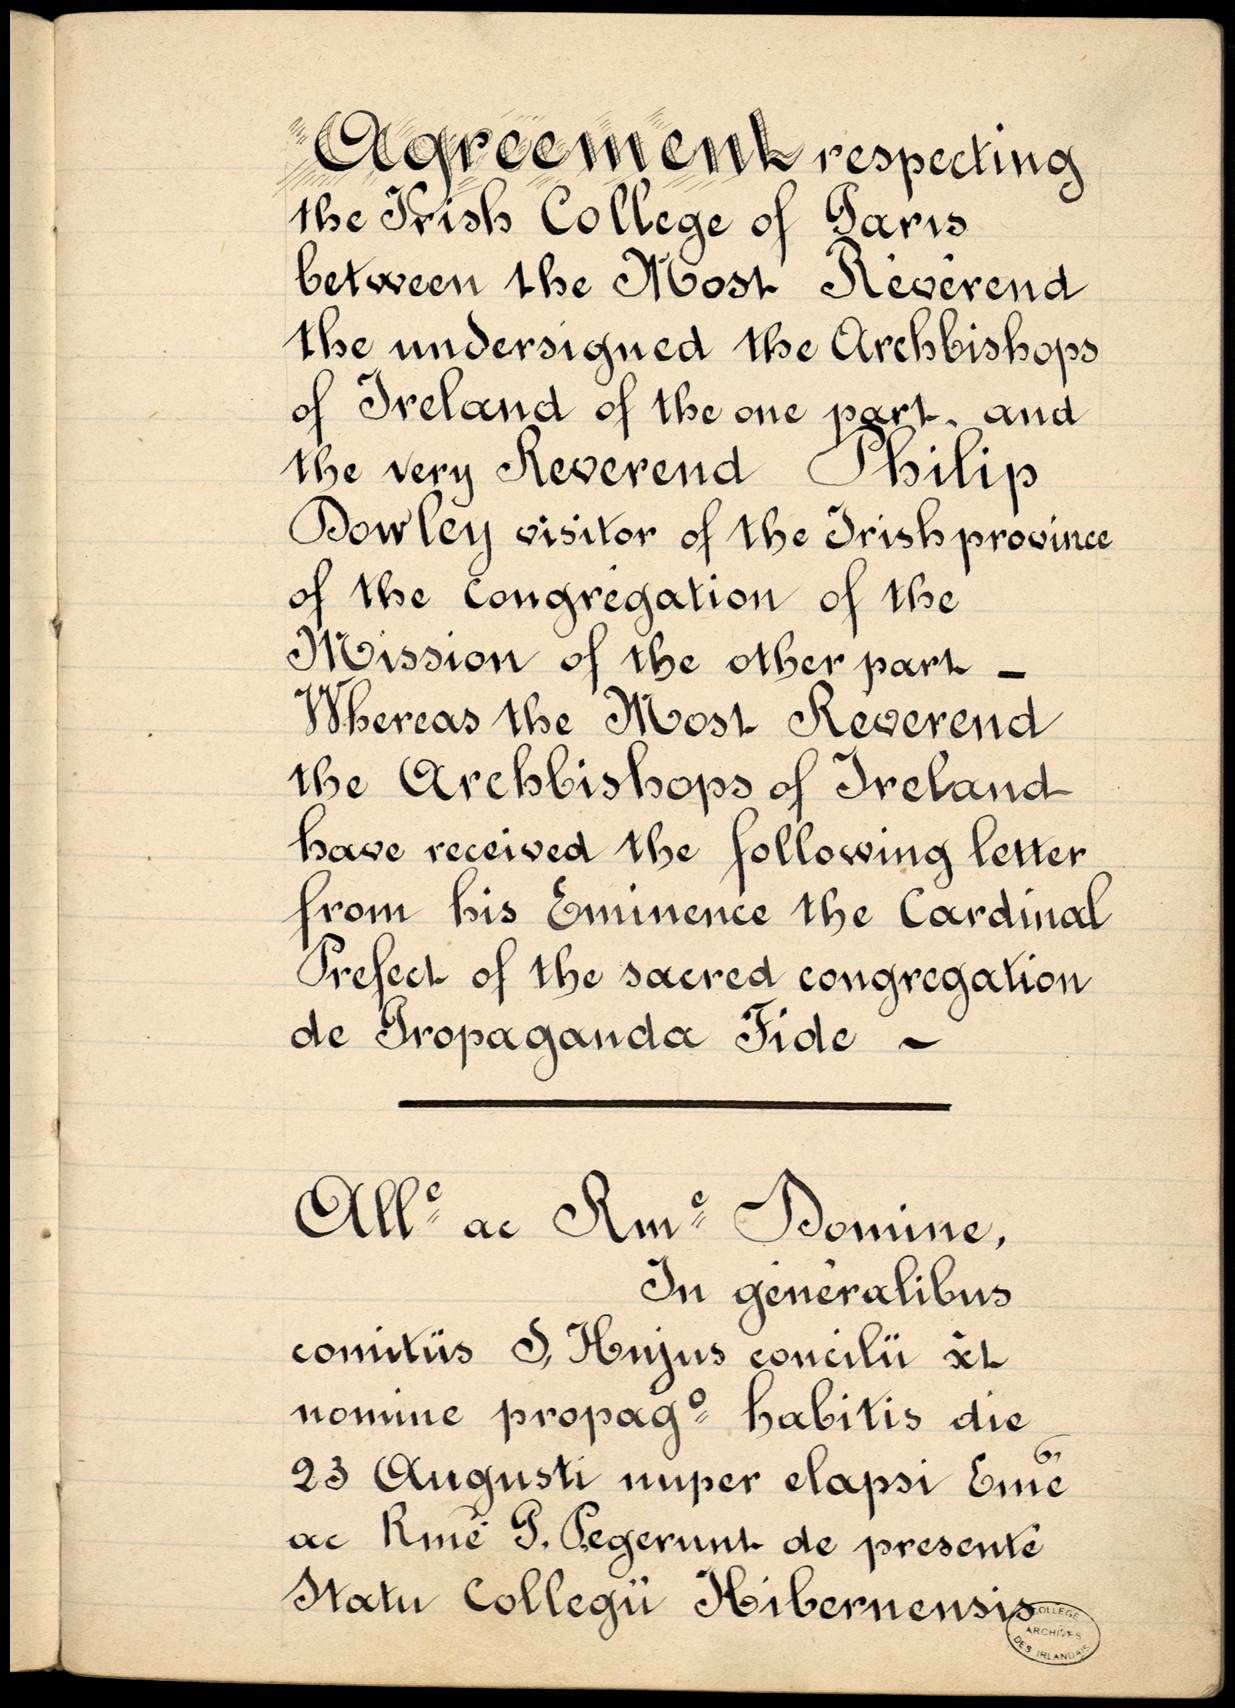 Agreement respecting
the Irish College of Paris
between the Most Révérend
the undersigned the Archbishops
of Ireland of the one part. and
the very Reverend Philip
Dowley visitor of the Irish province
of the congrégation of the
Mission of the other part _
Whereas the Most Reverend
the Archbishops of Ireland
have received the following letter
from his Eminence the Cardinal
Prefect of the sacred congregation
de Propaganda Fide ~
Allᵉ ac Rmᵉ Domine,
In généralibus
comitiis S, Hujus concilii xt
nomine propagº habitis die
23 Augusti nuper elapsi Eme
ac Rme P. Pegerunt de presente
Statu Collegii Hibernensis
COLLÈGE
ARCHIVES
DES IRLANDAIS